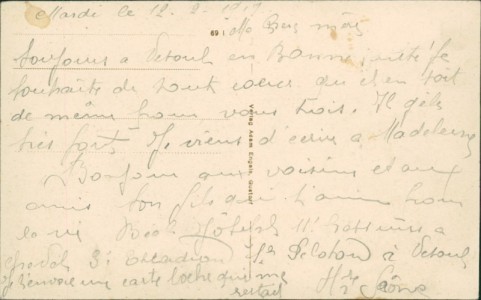 Mardi le 12-2-1919
69 | Ma Bien mère
toujours a Vesoul en Bonne santé je
souhaite de tout coeur qu'il en soit
de même pour vous trois. Il gèle
très fort. Je viens d'écrire a Madeleine
Bonjour aux voisins et aux
amis ton fils qui t'aime pour
la vie
11e Hussards
3e Escadron 1er Peloton à Vesoul
Hte Saône
envoie une carte
Verlag Adam